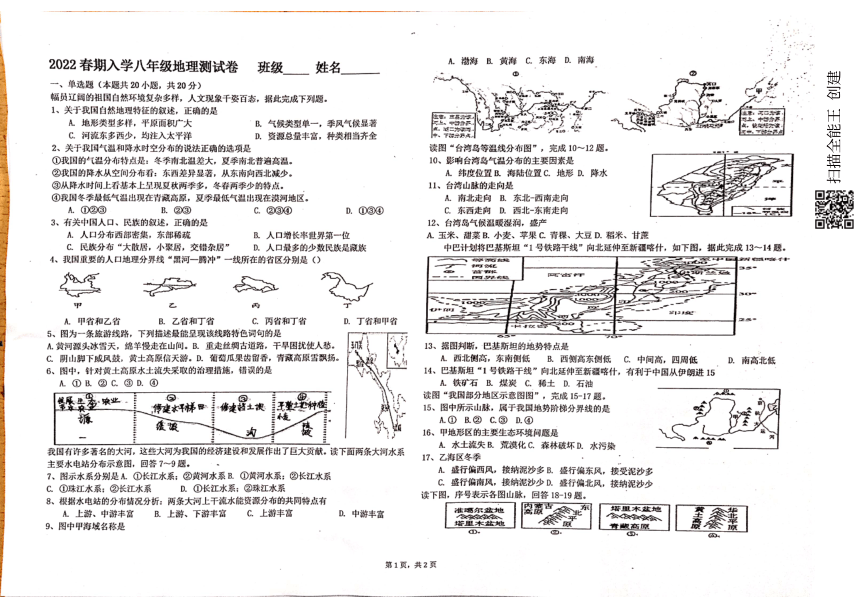 2022 春期入学八年级地理测试卷 班级____ 姓名______
一、单选题（本题共 20 小题，共 20 分）
幅员辽阔的祖国自然环境复杂多样，人文现象千姿百态，据此完成下列题。
1、关于我国自然地理特征的叙述，正确的是
A. 地形类型多样，平原面积广大 B. 气候类型单一，季风气候显著
C. 河流东多西少，均注入太平洋 D. 资源总量丰富，种类相当齐全
2、关于我国气温和降水时空分布的说法正确的选项是
①我国的气温分布特点是：冬季南北温差大，夏季南北普遍高温。
②我国的降水从空间分布看：东西差异显著，从东南向西北减少。
③从降水时间上看基本上呈现夏秋两季多，冬春两季少的特点。
④我国冬季最低气温出现在青藏高原，夏季最低气温出现在漠河地区。
A. ①②③ B. ②③ C. ②③④ D. ①③④
3、有关中国人口、民族的叙述，正确的是
A. 人口分布西部密集，东部稀疏 B. 人口增长率世界第一位
C. 民族分布“大散居，小聚居，交错杂居” D. 人口最多的少数民族是藏族
4、我国重要的人口地理分界线“黑河—腾冲”一线所在的省区分别是（）
甲 乙 丙 丁
A. 甲省和乙省 B. 乙省和丁省 C. 丙省和丁省 D. 丁省和甲省
5、图为一条旅游线路，下列描述最能呈现该线路特色词句的是
A. 黄河源头冰雪天，绵羊慢走在山间。B. 重走丝绸古道路，干旱困扰使人愁。
C. 阴山脚下威风鼓，黄土高原信天游。D. 葡萄瓜果齿留香，青藏高原雪飘扬。
6、图中，针对黄土高原水土流失采取的治理措施，错误的是
A. ① B. ② C. ③ D. ④
① ② ③ ④
修建水平梯田
缓坡
沟
陡坡
我国有许多著名的大河，这些大河为我国的经济建设和发展作出了巨大贡献。读下面两条大河水系
主要水电站分布示意图，回答 7～9 题。
7、图示水系分别是 A. ①长江水系；②黄河水系 B. ①黄河水系；②长江水系
C. ①珠江水系；②长江水系 D. ①长江水系；②珠江水系
8、根据水电站的分布情况分析：两条大河上干流水能资源分布的共同特点有
A. 上游、中游丰富 B. 上游、下游丰富 C. 上游丰富 D. 中游丰富
9、图中甲海域名称是
A. 渤海 B. 黄海 C. 东海 D. 南海
① ②
甲
读图“台湾岛等温线分布图”，完成 10～12 题。
10、影响台湾岛气温分布的主要因素是
A. 纬度位置 B. 海陆位置 C. 地形 D. 降水
11、台湾山脉的走向是
A. 南北走向 B. 东北-西南走向
C. 东西走向 D. 西北-东南走向
12、台湾岛气候温暖湿润，盛产
A. 玉米、甜菜 B. 小麦、苹果 C. 青稞、大豆 D. 稻米、甘蔗
中巴计划将巴基斯坦“1 号铁路干线”向北延伸至新疆喀什，如下图，据此完成 13～14 题。
等高线
河流
首都
国界线
阿富汗
伊朗
印度
卡拉奇
35°
30°
25°
13、据图判断，巴基斯坦的地势特点是
A. 西北侧高，东南侧低 B. 西侧高东侧低 C. 中间高，四周低 D. 南高北低
14、巴基斯坦“1 号铁路干线”向北延伸至新疆喀什，有利于中国从伊朗进 15
A. 铁矿石 B. 煤炭 C. 稀土 D. 石油
读图“我国部分地区示意图图”，完成 15-17 题。
15、图中所示山脉，属于我国地势阶梯分界线的是
A. ① B. ② C. ③ D. ④
16、甲地形区的主要生态环境问题是
A. 水土流失 B. 荒漠化 C. 森林破坏 D. 水污染
17、乙海区冬季
A. 盛行偏西风，接纳泥沙多 B. 盛行偏东风，接受泥沙多
C. 盛行偏南风，接纳泥沙少 D. 盛行偏北风，接纳泥沙少
读下图，序号表示各图山脉，回答 18-19 题。
准噶尔盆地
塔里木盆地
①
内蒙古高原
东北平原
②
塔里木盆地
青藏高原
③
黄土高原
华北平原
④
第 1 页，共 2 页
扫描全能王 创建